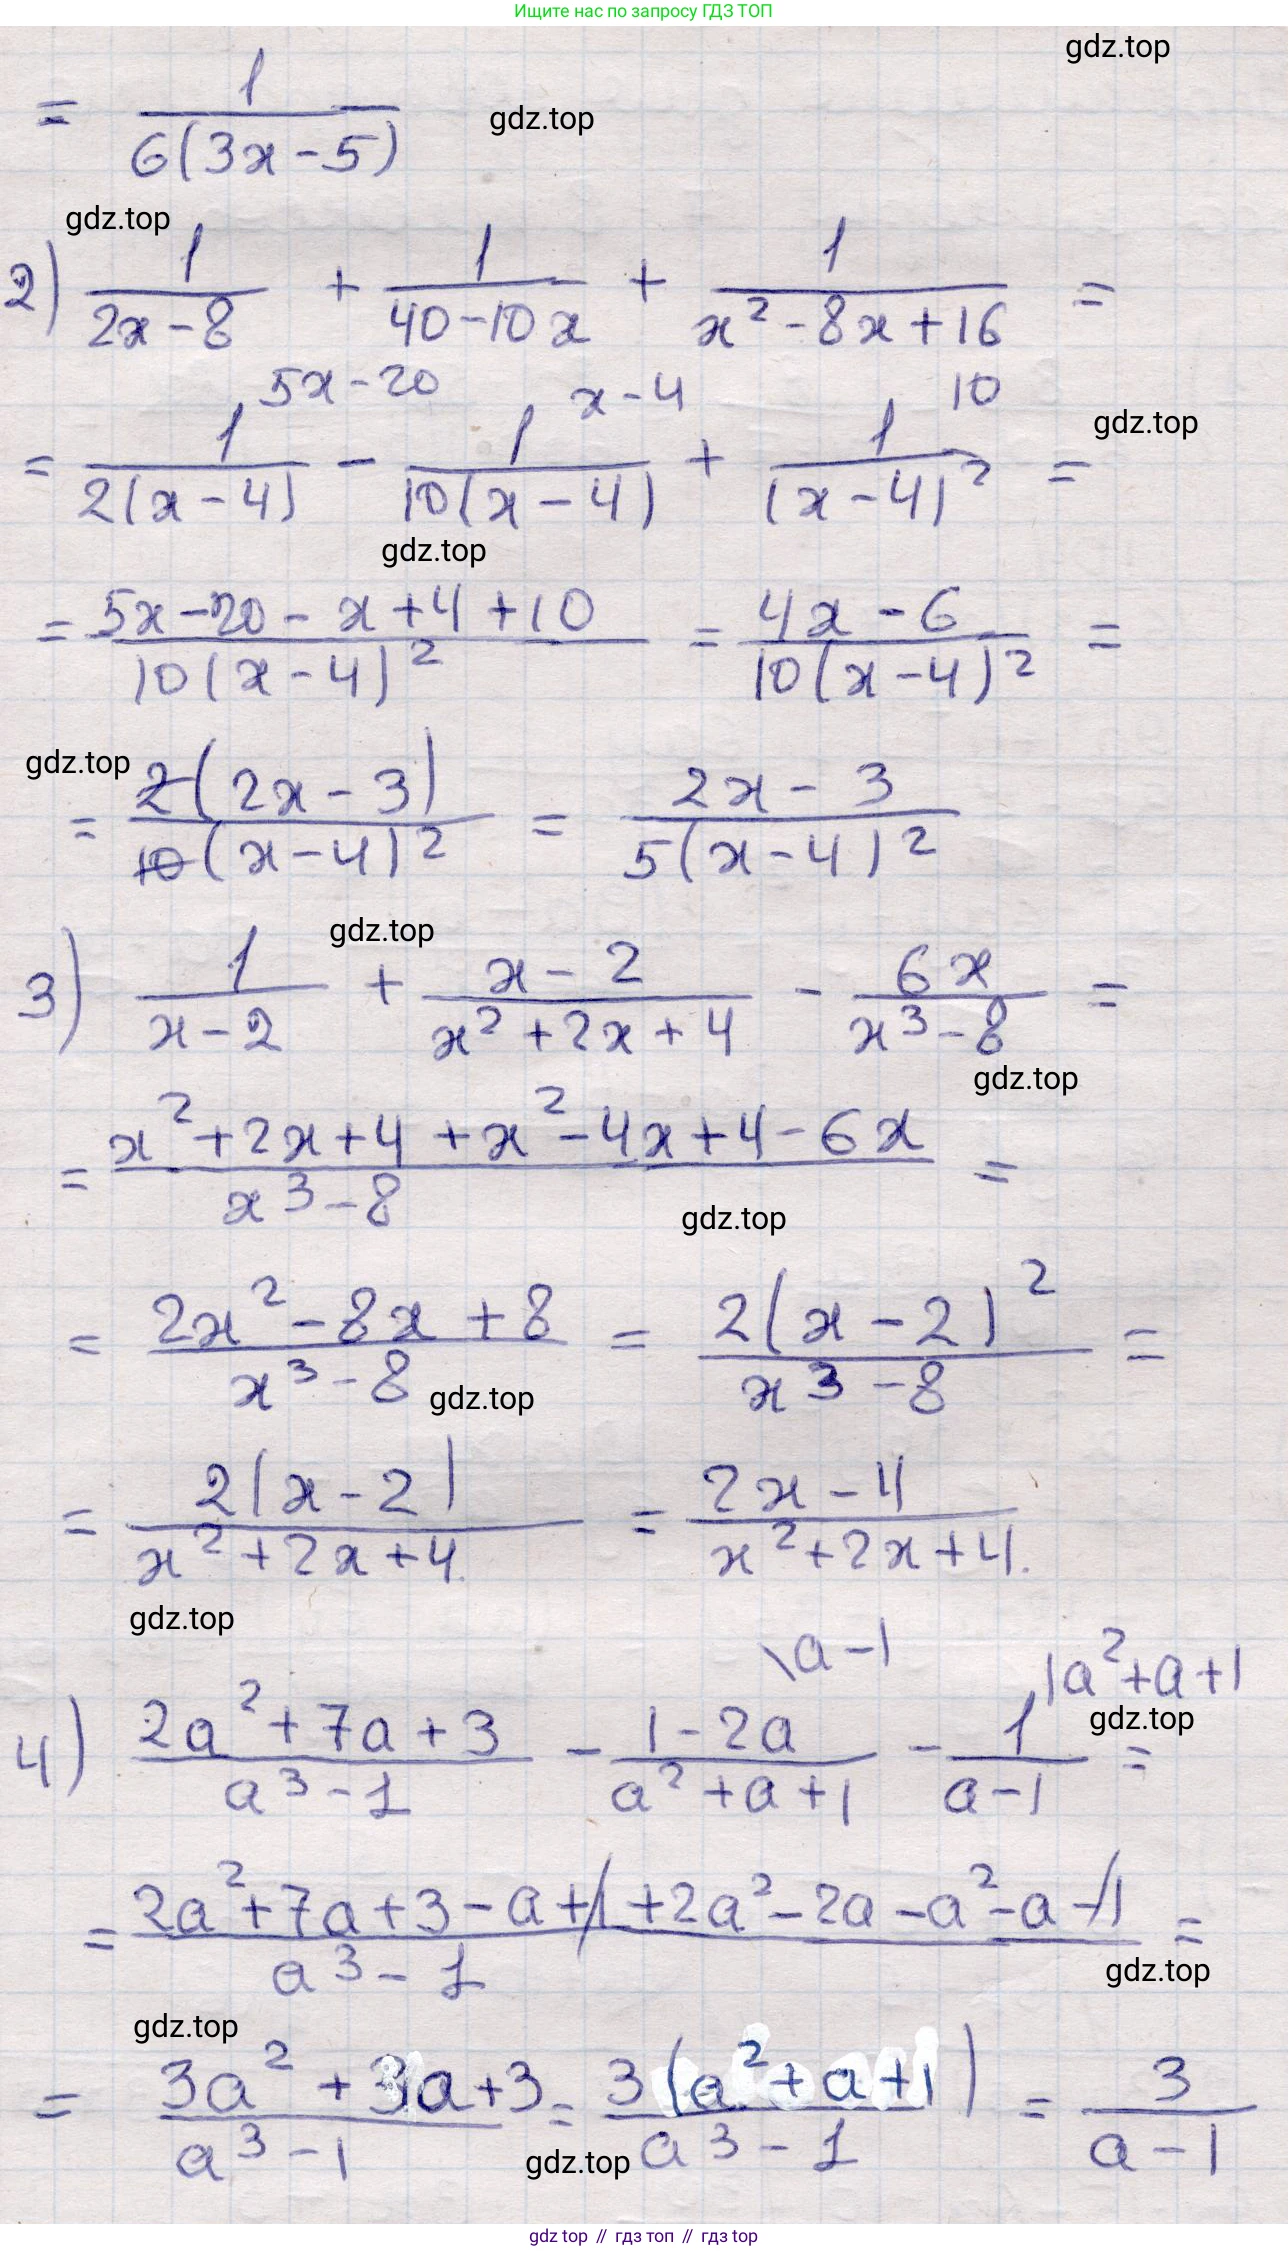 Ищите нас по запросу ГДЗ ТОП
gdz.top
= 1/(6(3x-5))
gdz.top
gdz.top
2) 1/(2x-8) + 1/(40-10x) + 1/(x²-8x+16) =
5x-20 x-4 10
= 1/(2(x-4)) - 1/(10(x-4)) + 1/(x-4)² =
gdz.top
gdz.top
= (5x-20-x+4+10)/(10(x-4)²) = (4x-6)/(10(x-4)²) =
gdz.top
= 2(2x-3)/(10(x-4)²) = (2x-3)/(5(x-4)²)
gdz.top
3) 1/(x-2) + (x-2)/(x²+2x+4) - 6x/(x³-8) =
gdz.top
= (x²+2x+4+x²-4x+4-6x)/(x³-8) =
gdz.top
= (2x²-8x+8)/(x³-8) = 2(x-2)²/(x³-8) =
gdz.top
= 2(x-2)/(x²+2x+4) = (2x-4)/(x²+2x+4).
gdz.top
\a-1 |a²+a+1
gdz.top
4) (2a²+7a+3)/(a³-1) - (1-2a)/(a²+a+1) - 1/(a-1) =
= (2a²+7a+3-a+1+2a²-2a-a²-a-1)/(a³-1) =
gdz.top
gdz.top
= (3a²+3a+3)/(a³-1) = 3(a²+a+1)/(a³-1) = 3/(a-1)
gdz.top
gdz top // гдз топ // гдз top